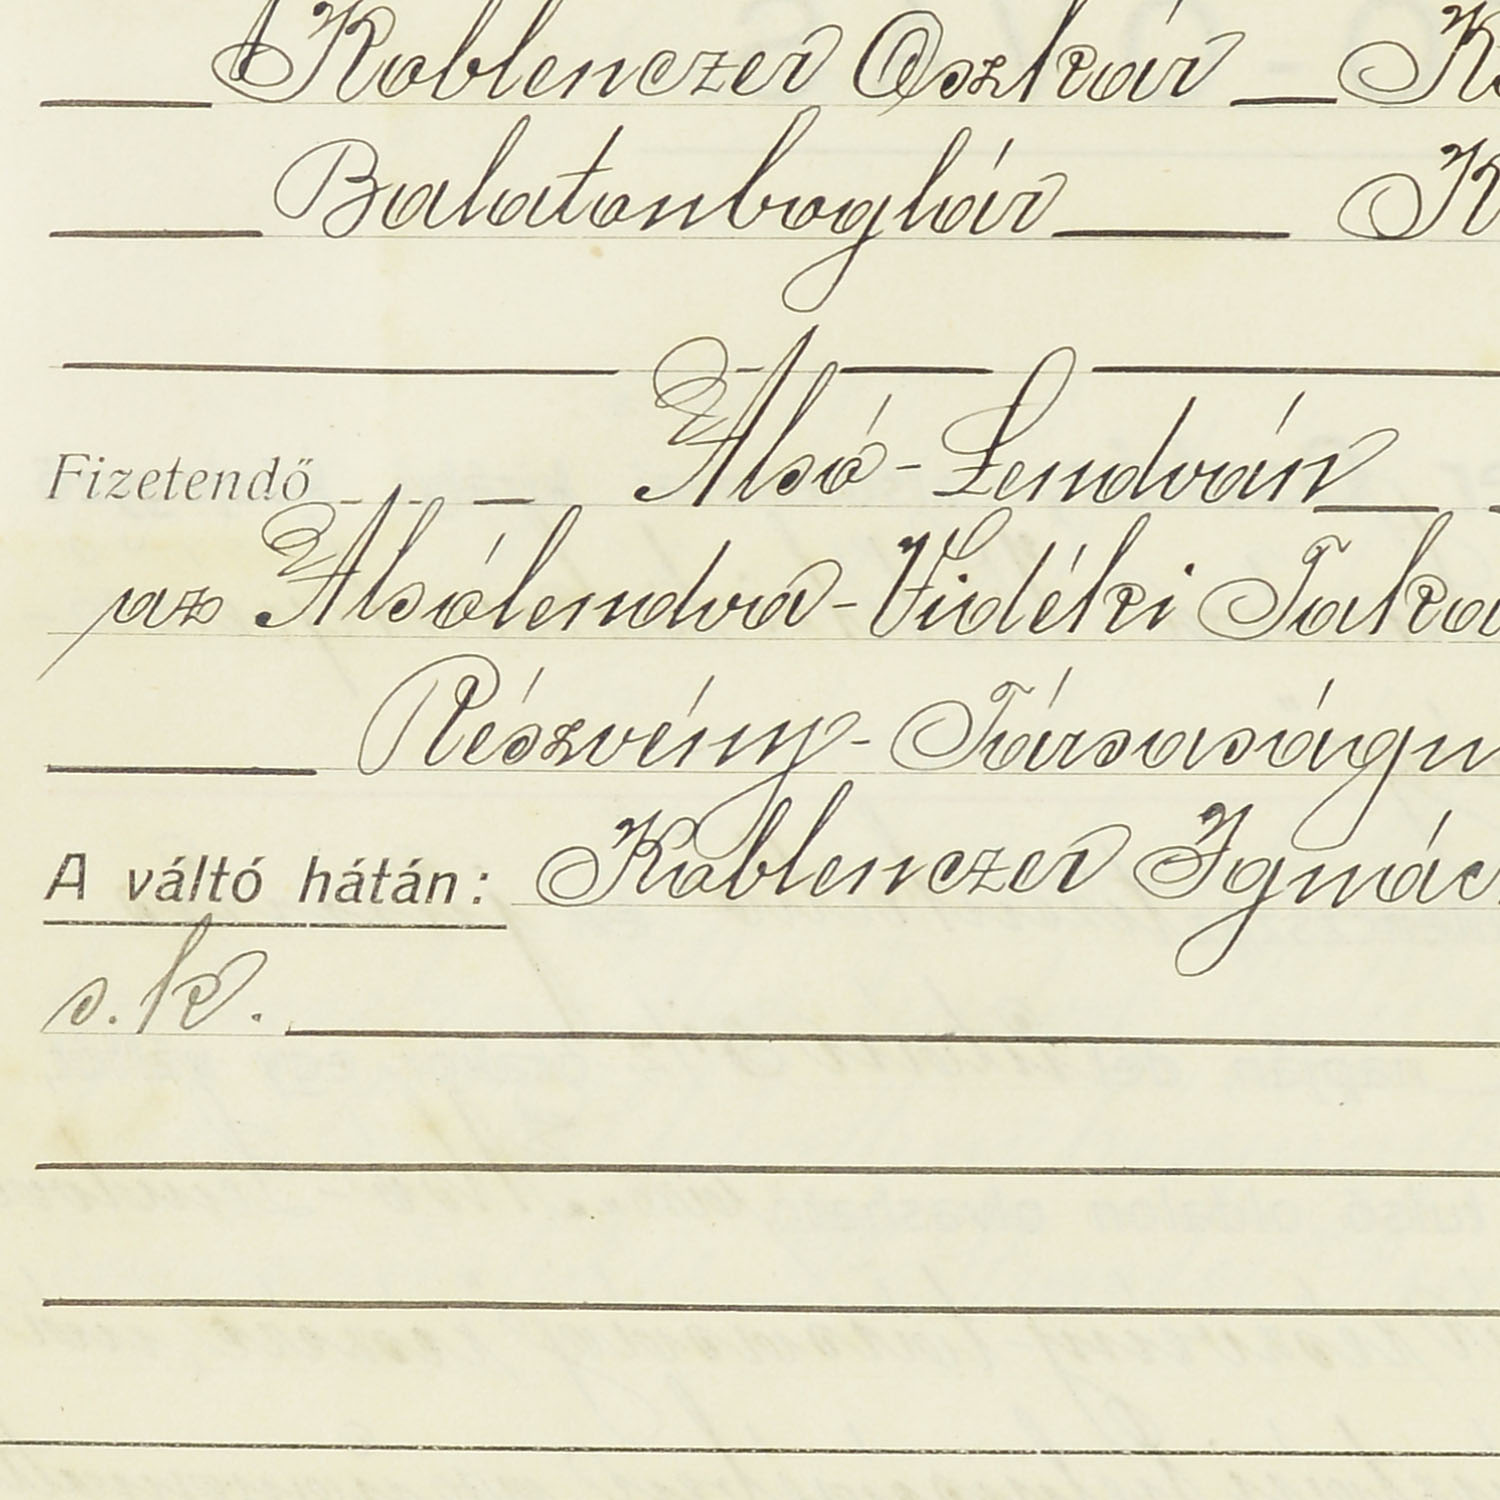 Koblenczer Oszkár
Balatonboglár
Fizetendő Alsó-Lendván
az Alsólendva-Vidéki
Részvény-
A váltó hátán: Koblenczer Ignác
s.k.